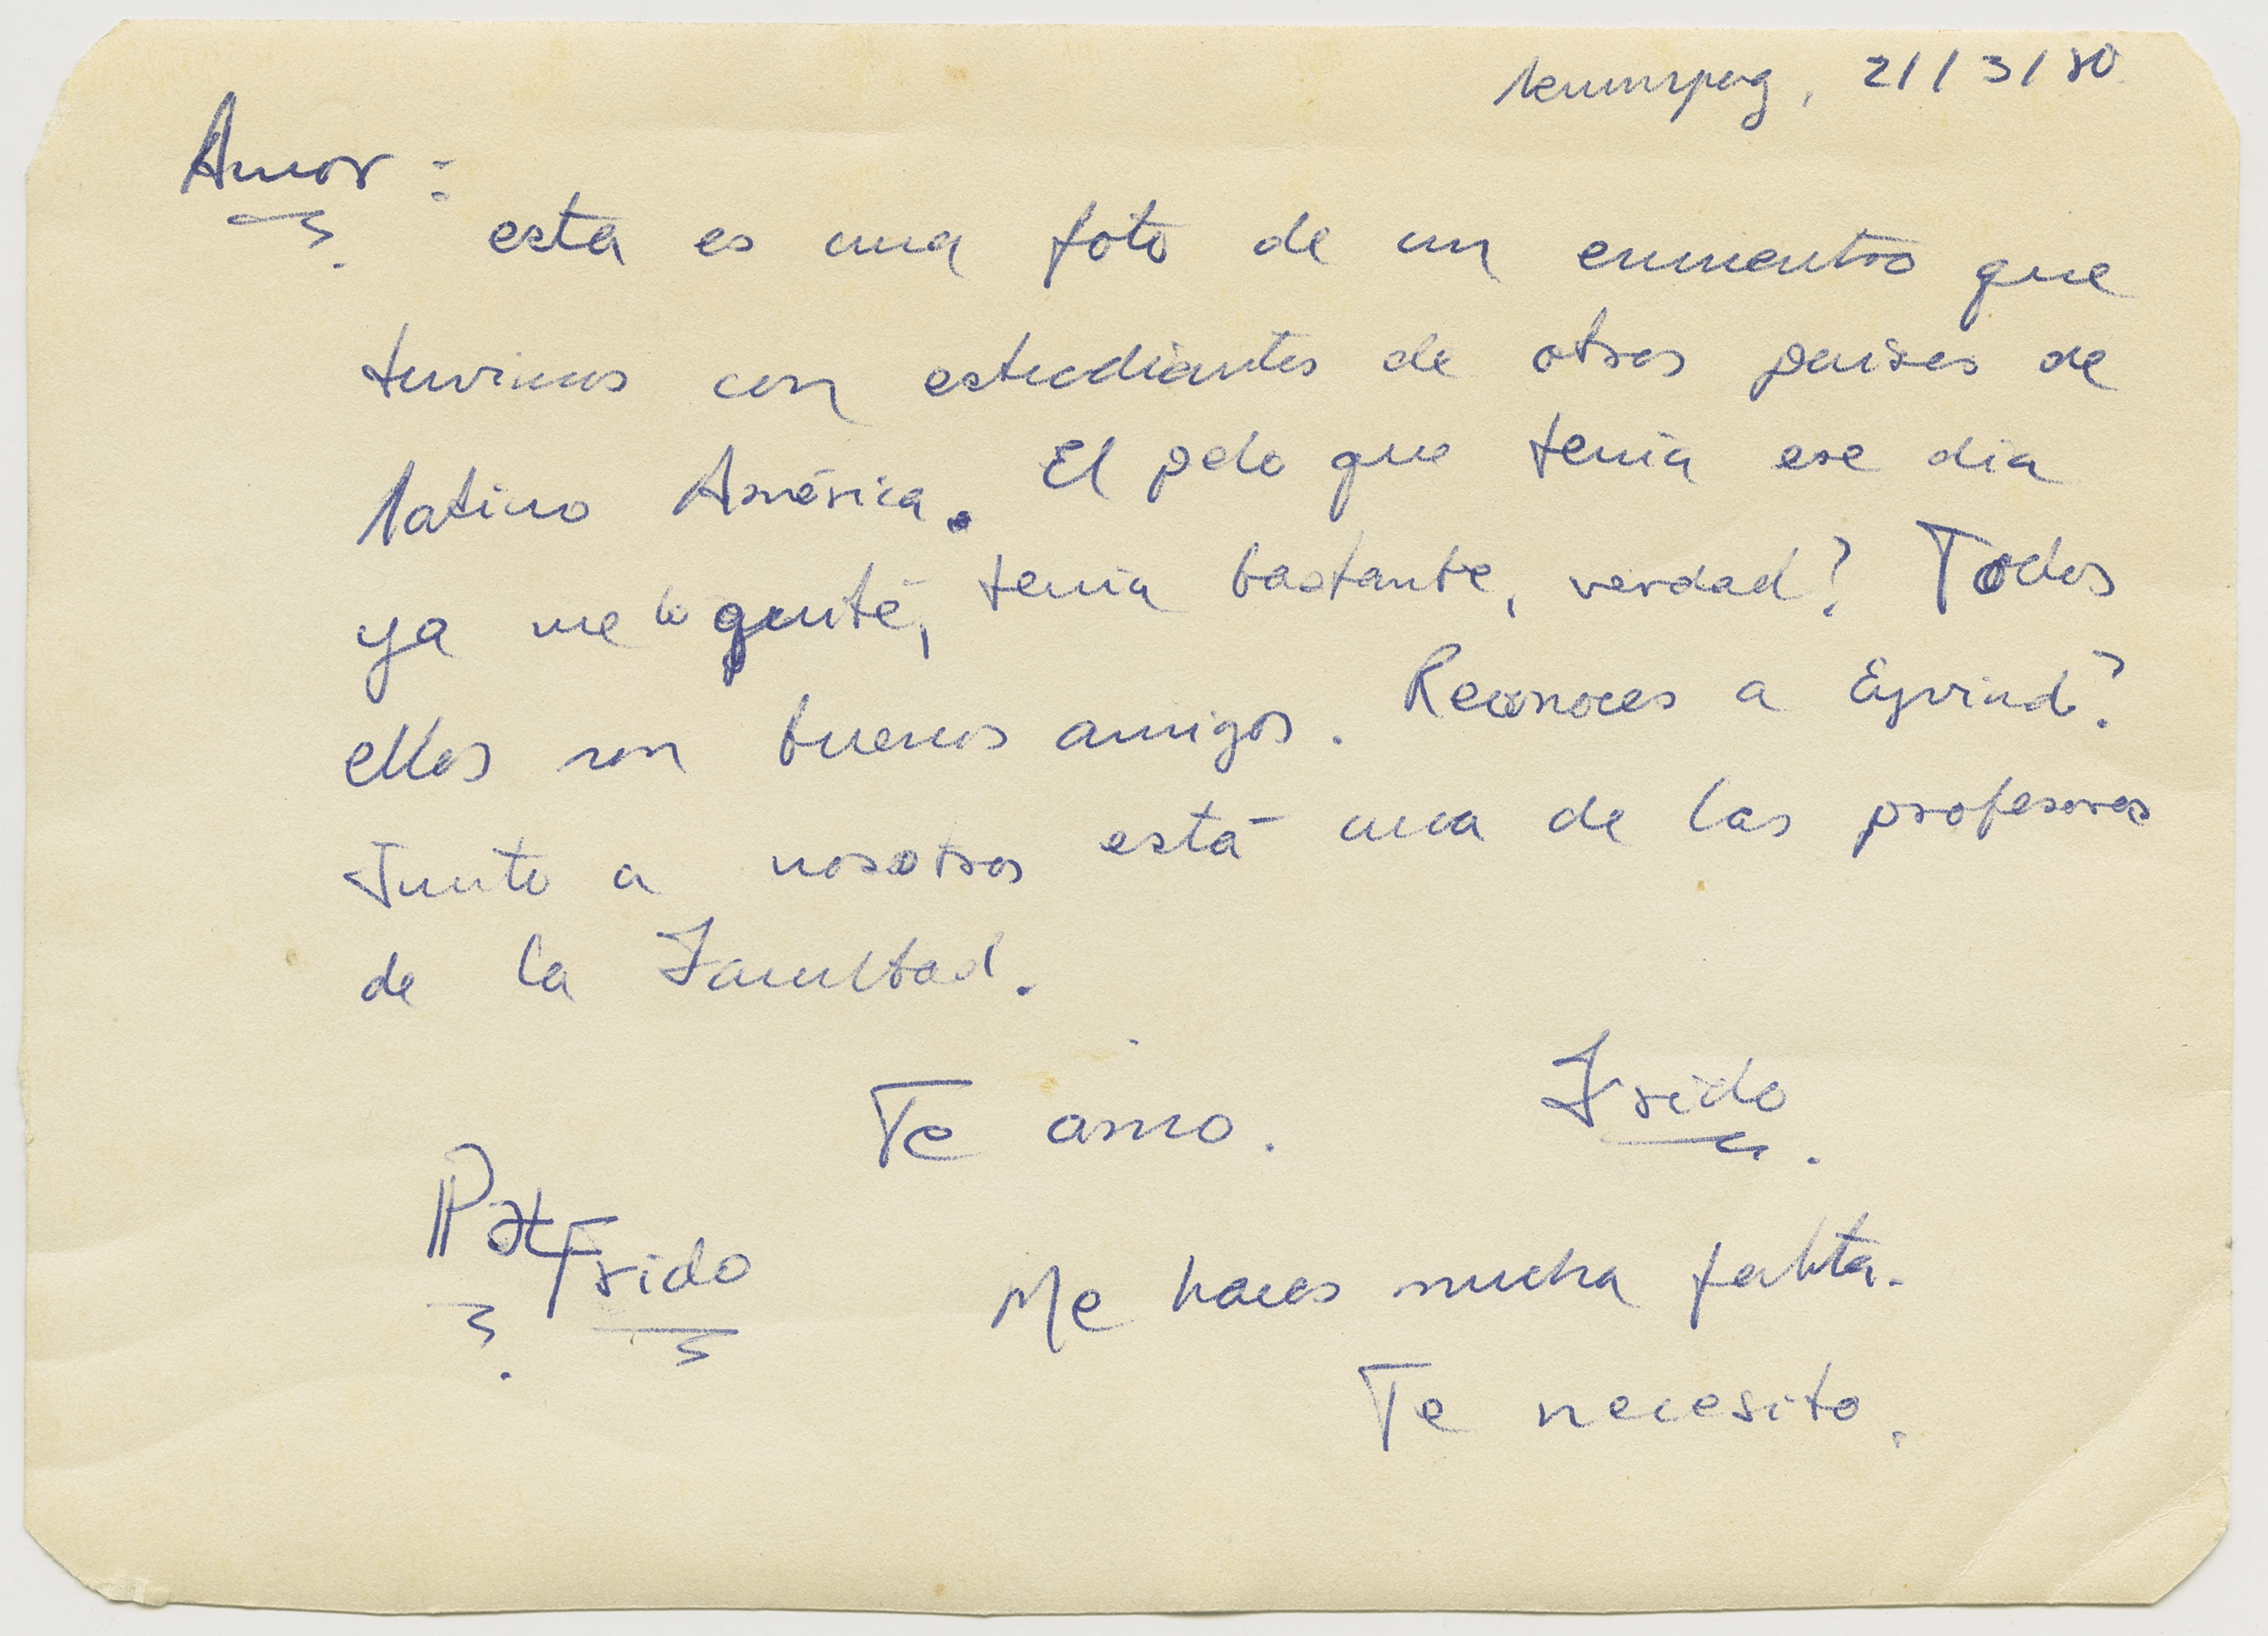 21/3/80
Amor:
esta es una foto de un encuentro que
tuvimos con estudiantes de otros paises de
latino América. El pelo que tenía ese día
ya me lo quité, tenía bastante, verdad? Todos
ellos son buenos amigos. Reconoces a Eyvind?
Junto a nosotros está una de las profesoras
de la Facultad.
Te amo. Frido
Pat Frido
Me haces mucha falta.
Te necesito.